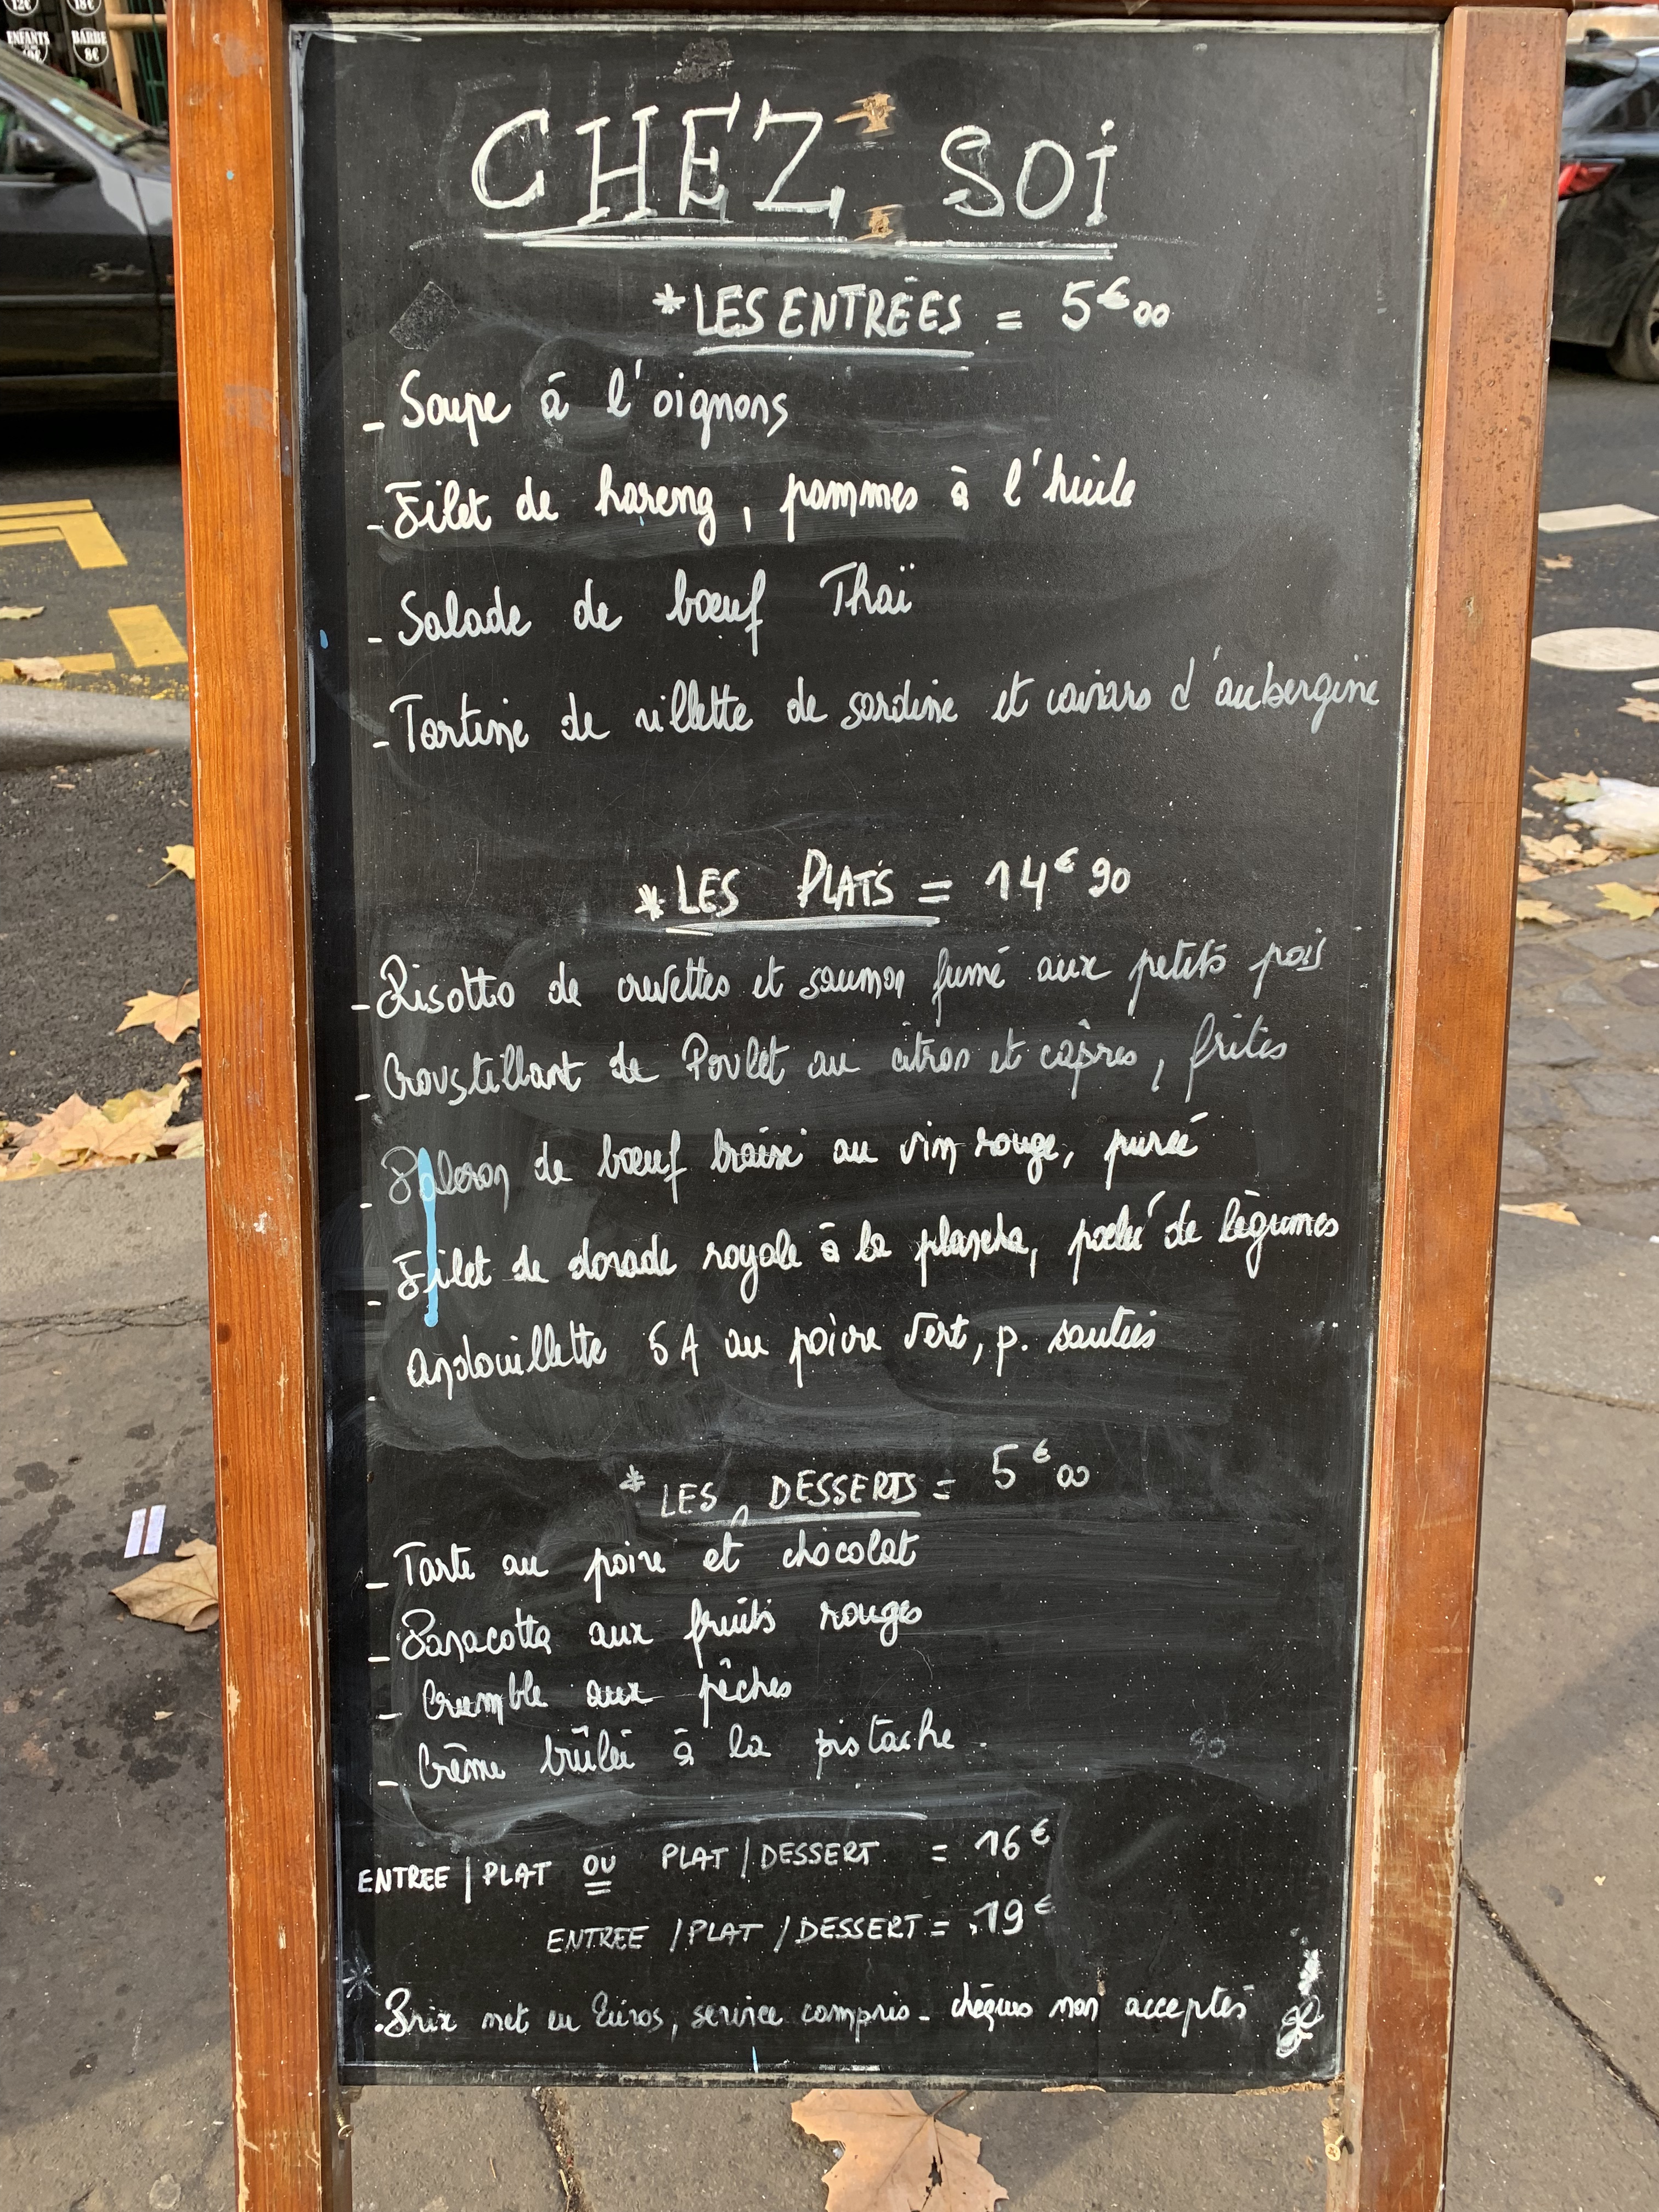 12€ 18€
ENFANTS BARBE
10€ 8€
CHEZ SOi
*LES ENTRÉES = 5€00
- Soupe à l'oignons
- Filet de hareng, pommes à l'huile
- Salade de bœuf Thaï
- Tartine de rillette de sardine et caviars d'aubergine
*LES PLATS = 14€90
- Risotto de crevettes et saumon fumé aux petits pois
- Croustillant de Poulet au citron et câpres, frites
- Paleron de bœuf braisé au vin rouge, purée
- Filet de dorade royale à la plancha, poélé de légumes
- andouillette 5A au poivre vert, p. sautées
* LES DESSERTS = 5€00
- Tarte au poire et chocolat
- Panacotta aux fruits rouges
- Crumble aux pêches
- Crème brûlée à la pistache
ENTREE / PLAT OU PLAT / DESSERT = 16€
ENTREE / PLAT / DESSERT = 19€
Prix net en Euros, service compris - chèques non acceptés